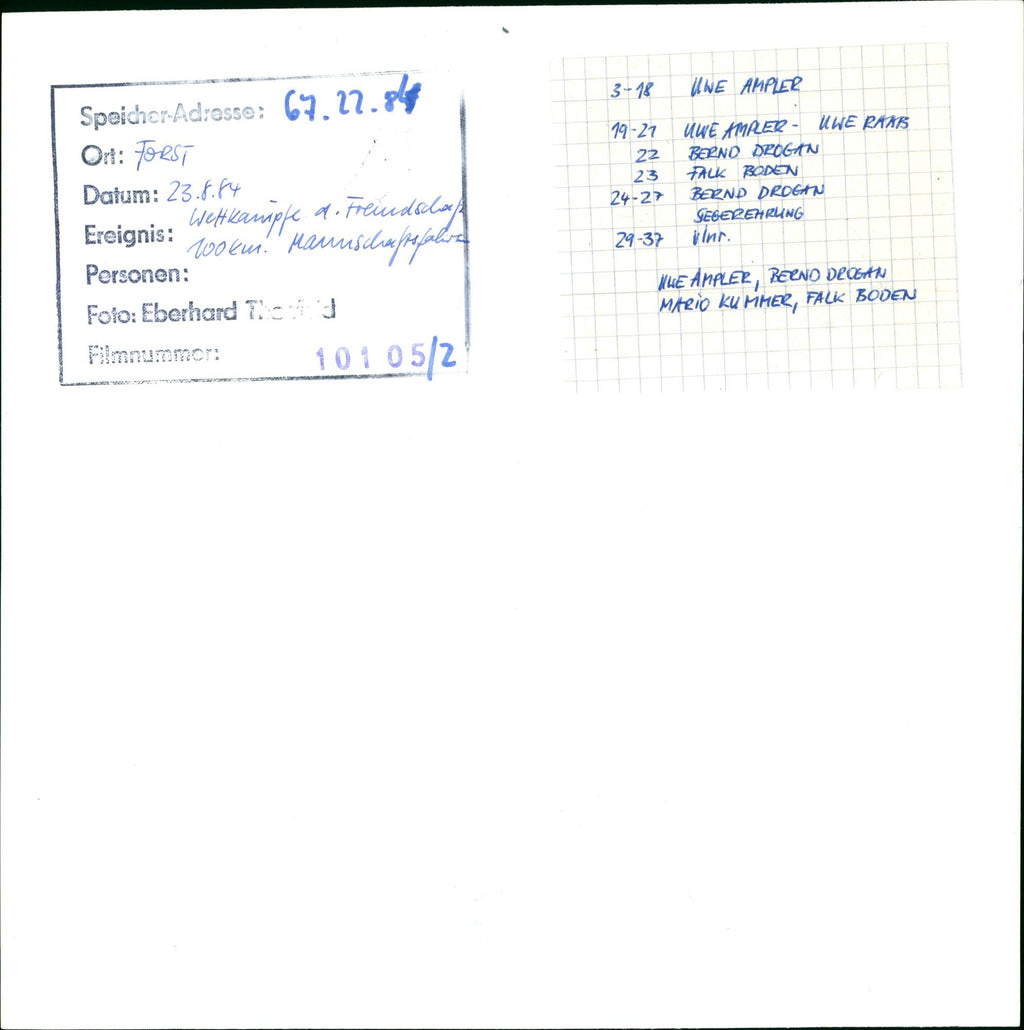 Speicher-Adresse: 67.22.84
Ort: FORST
Datum: 23.8.84
Wettkämpfe d. Freundschaft
Ereignis:
100km. Mannschaftsfahren
Personen:
Foto: Eberhard
Filmnummer: 10105/2
3-18 UWE AMPLER
19-21 UWE AMPLER - UWE RAAB
22 BERND DROGAN
23 FALK BODEN
24-27 BERND DROGAN
SIEGEREHRUNG
29-37 vlnr.
UWE AMPLER, BERND DROGAN
MARIO KUMMER, FALK BODEN